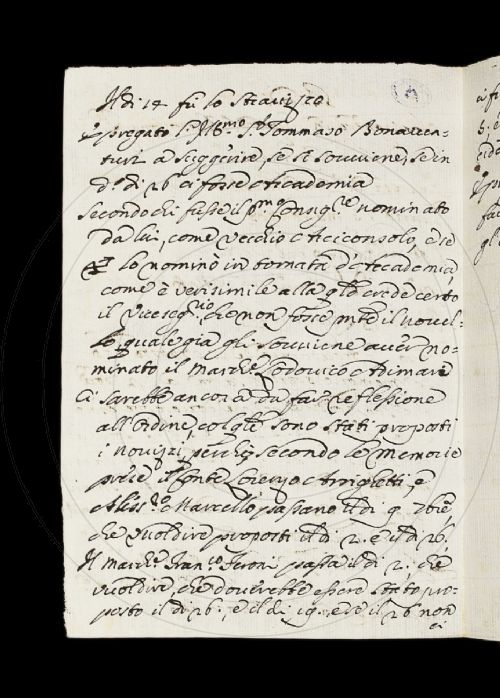 Il dì 14 fù lo Stravizzo.
È pregato l'Ill.mo S.r Tommaso Bonaven-
turi a suggerire, se si souviene, se in
d.o dì 26 ci fosse Accademia
Secondo chi fusse il p.mo Consig.re nominato
da lui, come Vecchio Arciconsolo, e se
lo nominò in tornata d'Accademia,
come è verisimile alla q.le crede certo
il Viceseg.rio che non fosse p.nte il novel-
lo, quale già gli souviene aver no-
minato il March.e Lodovico Adimari
Ci sarebbe ancora da far reflessione
all'ordine, col q.le sono stati proposti
i Novizzi, perche secondo le memorie
prese il Conte Lorenzo Amghetti, e
Aless.ro Marcello passano il dì 9. 7bre
che vuol dire proposti il dì 2. e il dì 26.
Il March.e Fran.co passa il dì 2. che
vuol dire, che dovrebbe essere stato pro-
posto il dì 26., e il dì 19., e se il 26 non
ci